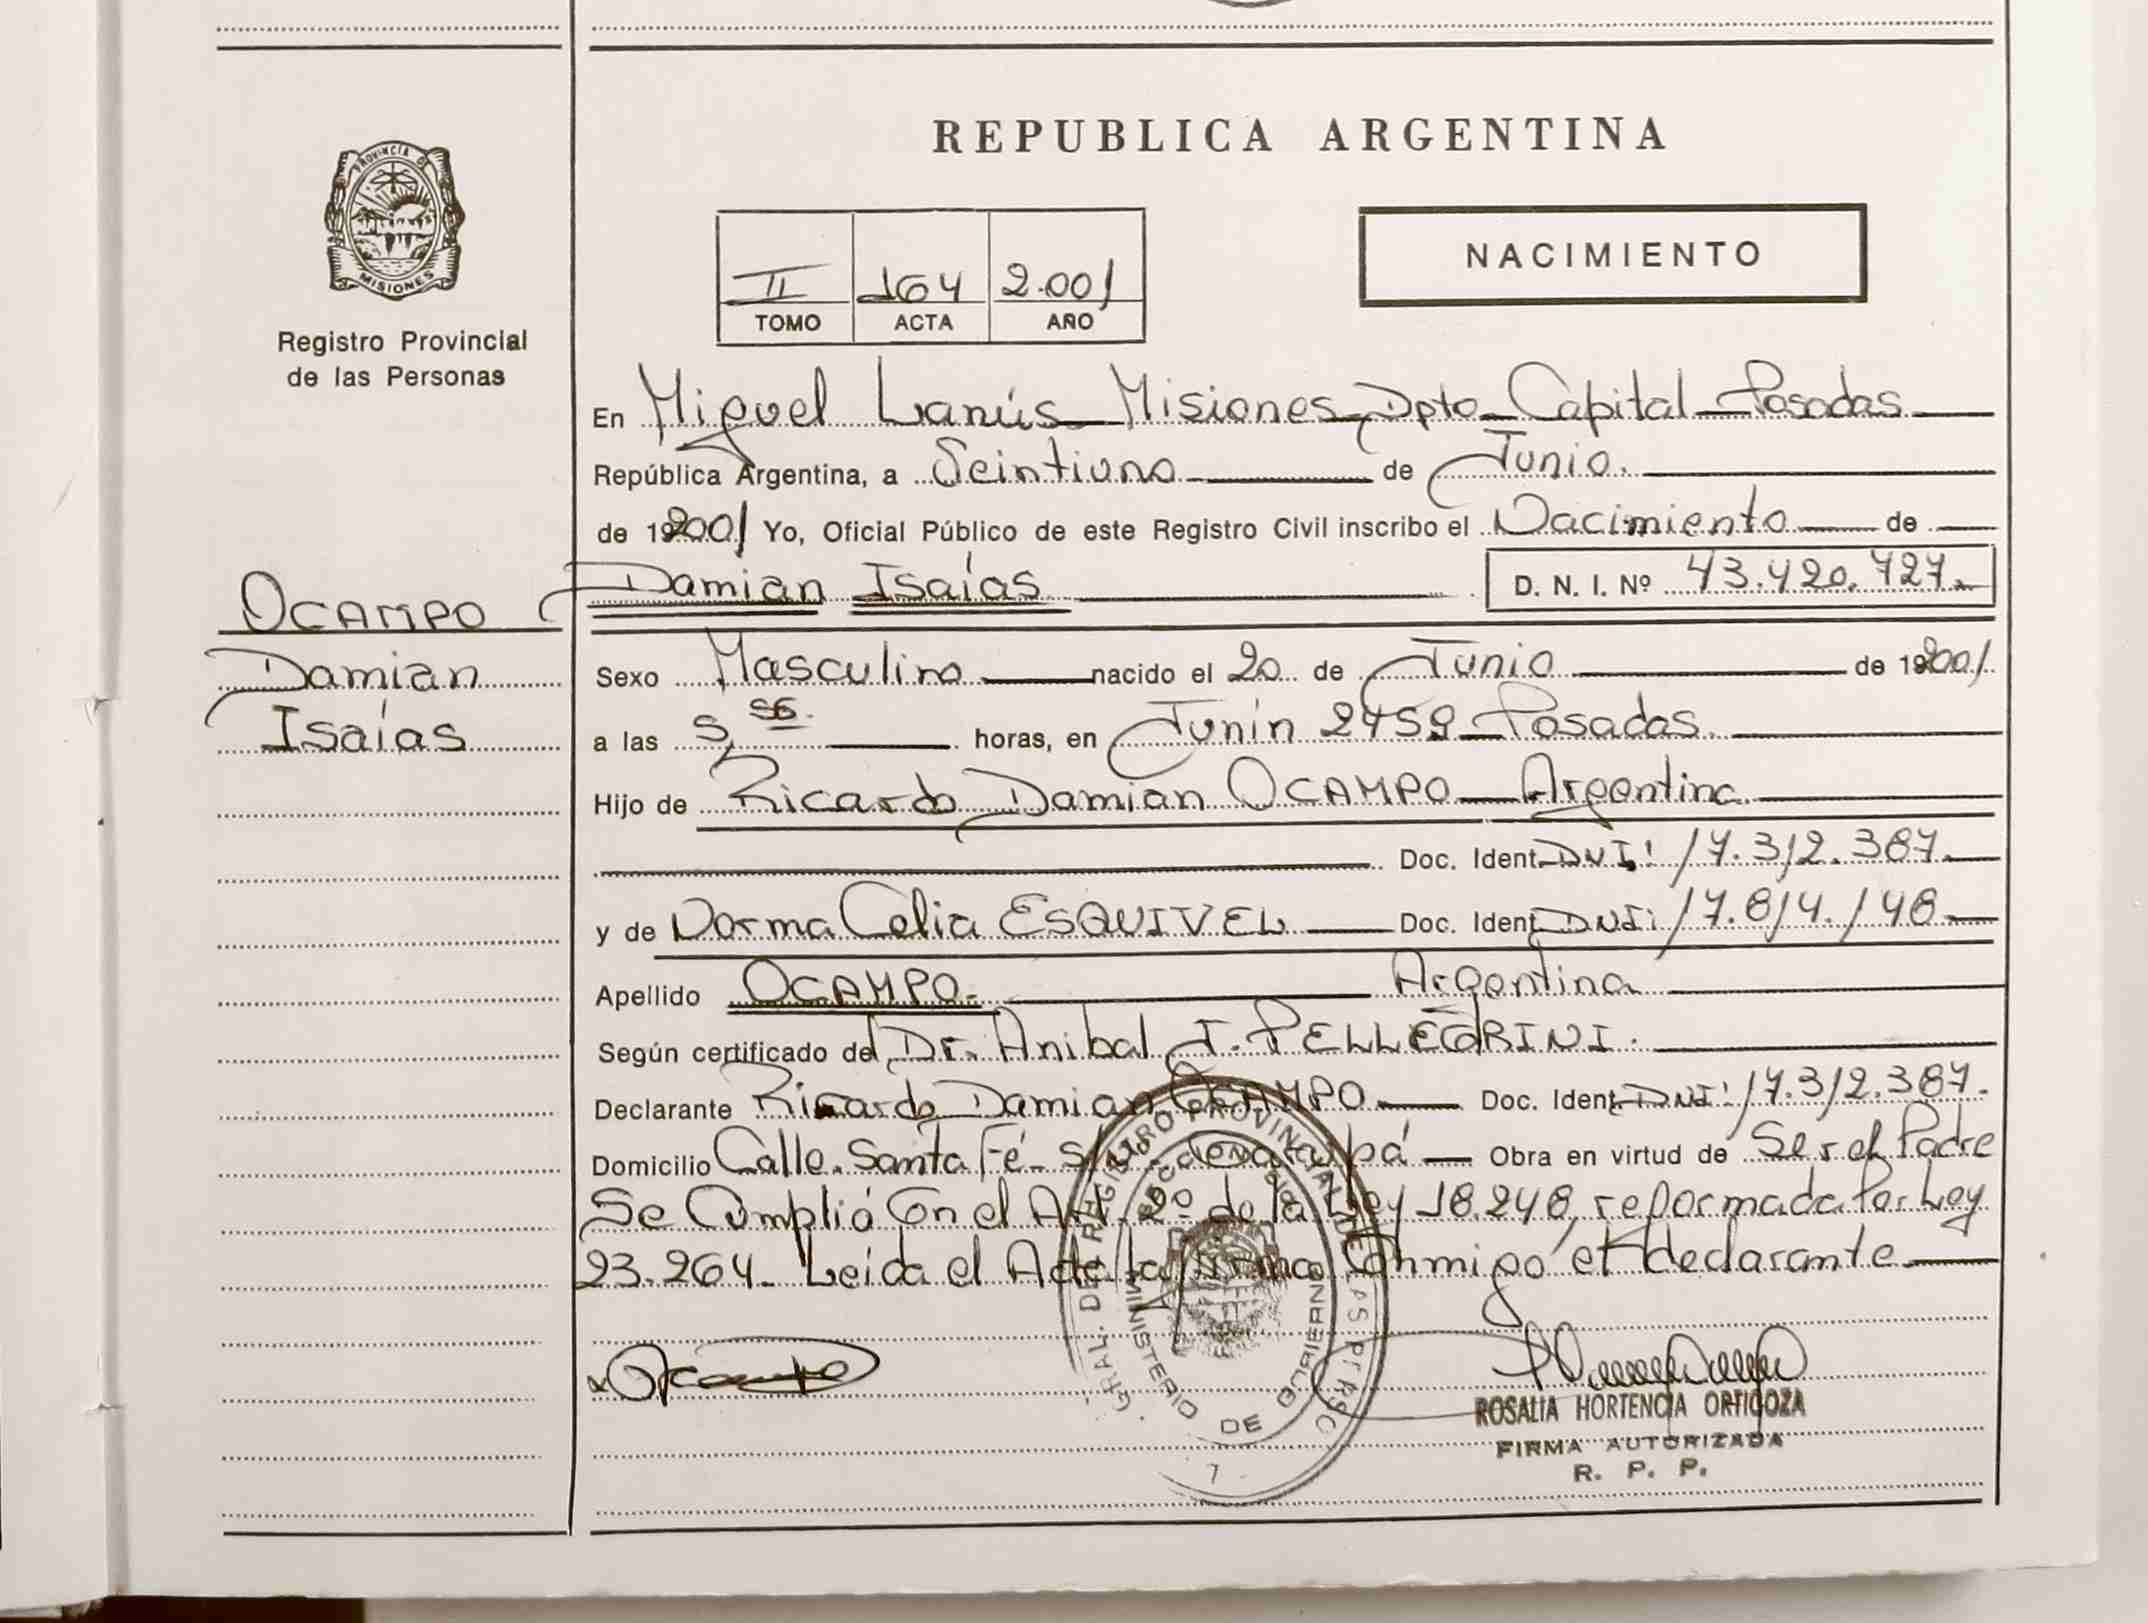 PROVINCIA DE
MISIONES
Registro Provincial
de las Personas
OCAMPO
Damian
Isaías
REPUBLICA ARGENTINA
II 164 2.001
TOMO ACTA AÑO
NACIMIENTO
En Miguel Lanús Misiones, Dpto Capital Posadas
República Argentina, a Veintiuno de Junio.
de 192001 Yo, Oficial Público de este Registro Civil inscribo el Nacimiento de
Damian Isaías D. N. I. Nº 43.420.727.
Sexo Masculino nacido el 20 de Junio de 192001
a las 5,56. horas, en Junín 2459 Posadas.
Hijo de Ricardo Damian OCAMPO Argentina
Doc. Ident. DNI: 17.312.387.
y de Norma Celia ESQUIVEL Doc. Ident. DNI: 17.814.148
Apellido OCAMPO. Argentina
Según certificado del Dr. Anibal J. PELLEGRINI.
Declarante Ricardo Damian OCAMPO Doc. Ident. DNI: 17.312.387.
Domicilio Calle Santa Fé S/Nº Obra en virtud de Ser el Padre
Se Cumplió Con el Art. 2º de la Ley 18.248, reformada Por Ley
23.264. Leída el Acta la firma Conmigo el declarante
Ocampo
GRAL. DEL REGISTRO PROVINCIAL DE LAS PERSO
MINISTERIO DE GOBIERNO
7
ROSALIA HORTENCIA ORTIGOZA
FIRMA AUTORIZADA
R. P. P.